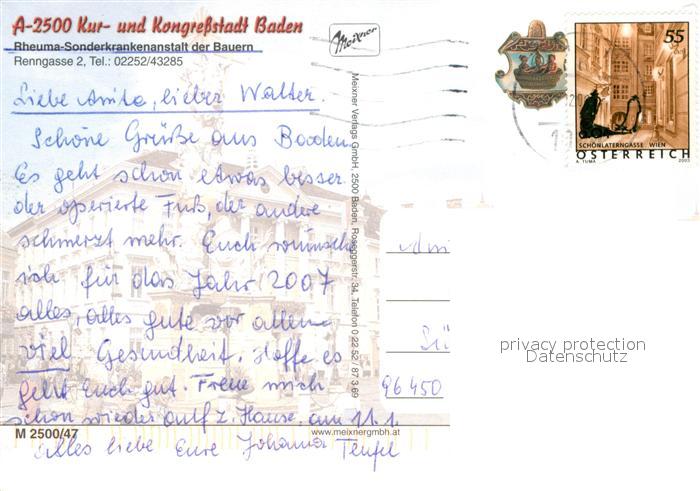 A-2500 Kur- und Kongreßstadt Baden
Rheuma-Sonderkrankenanstalt der Bauern
Renngasse 2, Tel.: 02252/43285
Meixner
Liebe Anita, lieber Walter.
Schöne Grüße aus Baden
Es geht schon etwas besser
der operierte Fuß, der andere
schmerzt mehr. Euch wünsche
ich für das Jahr 2007
alles, alles gute vor allem
viel Gesundheit. Hoffe es
geht Euch gut. Freue mich
schon wieder auf z. Hause. am 11.1.
Alles liebe Eure Johanna Teufel
M 2500/47
www.meixnergmbh.at
Meixner Verlags GmbH, 2500 Baden, Roseggerstr. 34, Telefon 0 22 52 / 87 3 69
55
SCHÖNLATERNGASSE, WIEN
ÖSTERREICH
A. TUMA
2003
privacy protection
Datenschutz
96450